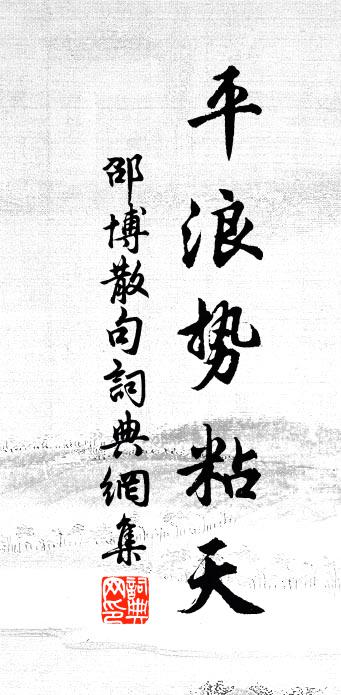 平浪势粘天
邵博散句詞典網集
詞典網印